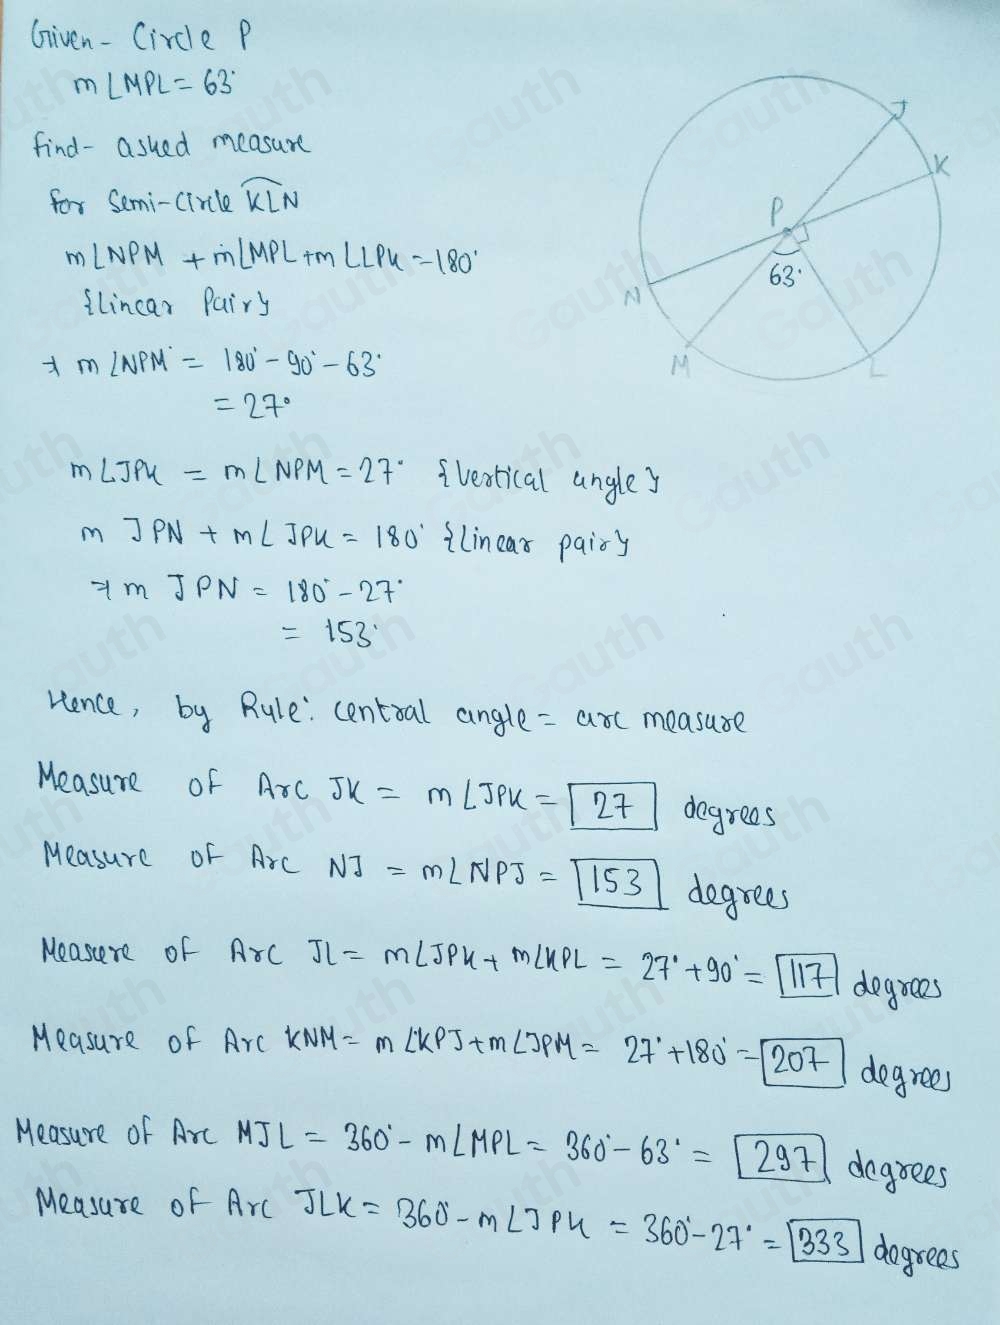 Given - Circle P
m∠MPL = 63°
find - asked measure
for Semi-Circle KLN
m∠NPM + m∠MPL + m∠LPK = 180°
{Linear Pair}
⇒ m∠NPM = 180° - 90° - 63°
= 27°
m∠JPK = m∠NPM = 27° {Vertical angle}
m JPN + m∠JPK = 180° {Linear pair}
⇒ m JPN = 180° - 27°
= 153°
Hence, by Rule: central angle = arc measure
Measure of Arc JK = m∠JPK = 27 degrees
Measure of Arc NJ = m∠NPJ = 153 degrees
Measure of Arc JL = m∠JPK + m∠KPL = 27° + 90° = 117 degrees
Measure of Arc KNM = m∠KPJ + m∠JPM = 27° + 180° = 207 degrees
Measure of Arc MJL = 360° - m∠MPL = 360° - 63° = 297 degrees
Measure of Arc JLK = 360° - m∠JPK = 360° - 27° = 333 degrees
J
K
P
63°
N
M
L
Gauth